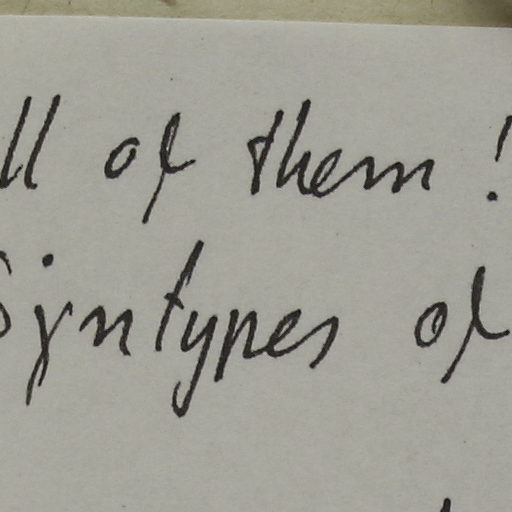 ll of them!
Syntypes of